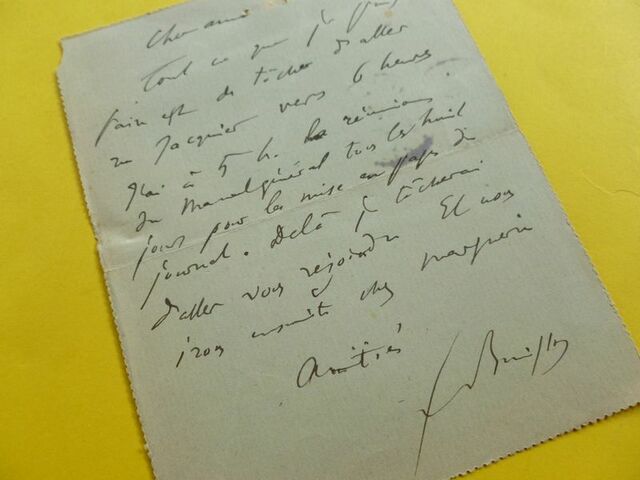 Cher ami
Tout ce que je puis
faire est de tâcher d'aller
au Jacquier vers 6 heures
J'ai à 5 h. la réunion
du Manuel général tous les huit
jours pour la mise en pages du
journal. De là je tâcherai
d'aller vous rejoindre Et nous
irons ensuite chez
Amitiés
F Buisson